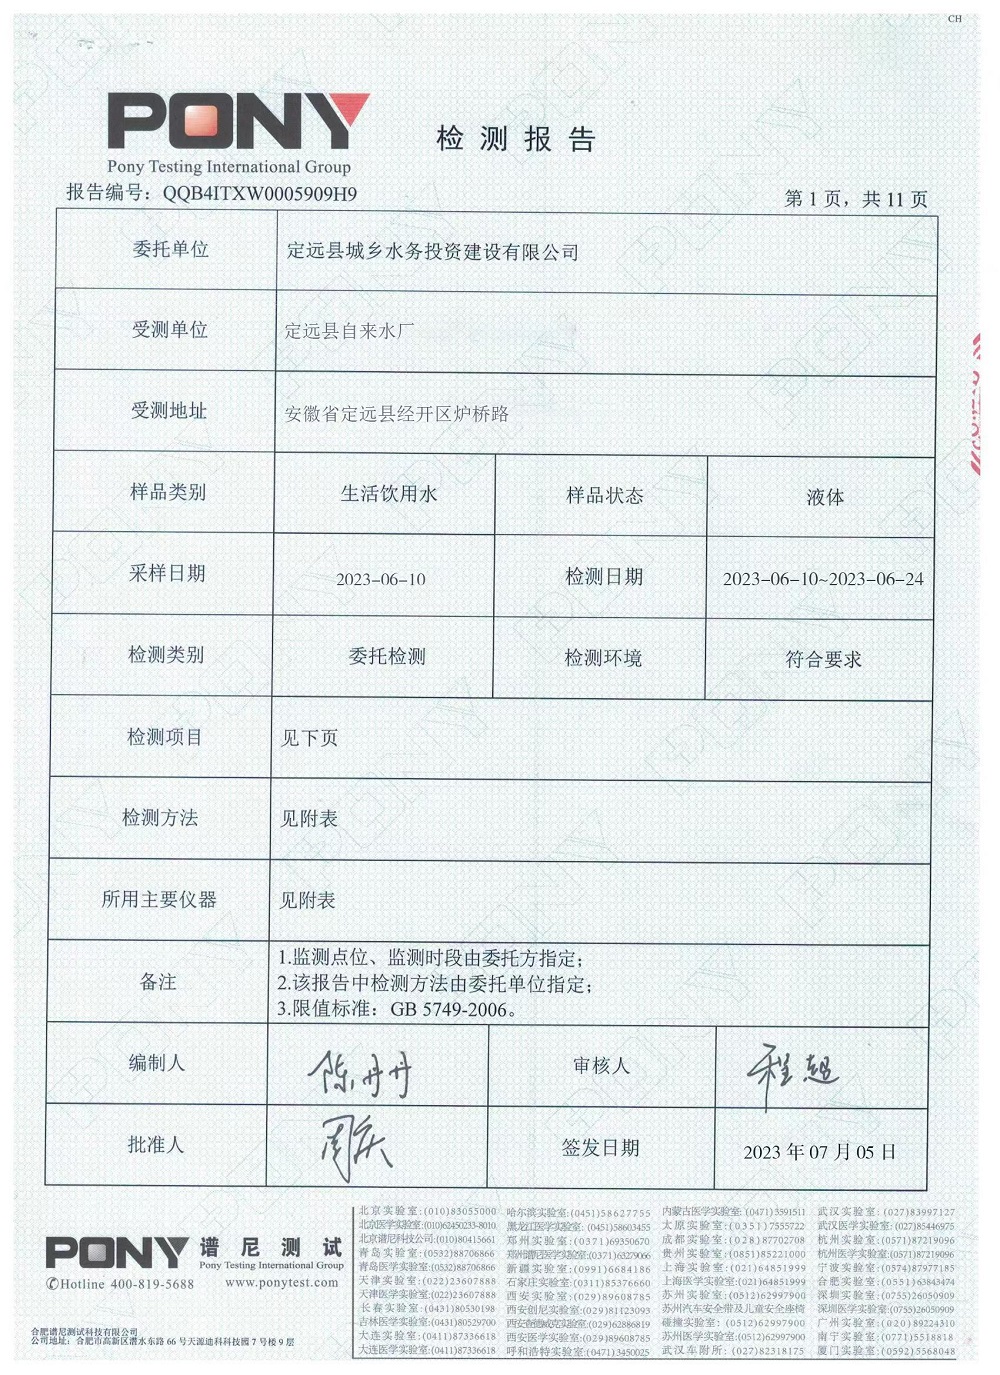 CH
PONY
Pony Testing International Group
检测报告
报告编号：QQB4ITXW0005909H9
第 1 页，共 11 页
委托单位 定远县城乡水务投资建设有限公司
受测单位 定远县自来水厂
受测地址 安徽省定远县经开区炉桥路
样品类别 生活饮用水 样品状态 液体
采样日期 2023-06-10 检测日期 2023-06-10~2023-06-24
检测类别 委托检测 检测环境 符合要求
检测项目 见下页
检测方法 见附表
所用主要仪器 见附表
备注 1.监测点位、监测时段由委托方指定；
2.该报告中检测方法由委托单位指定；
3.限值标准：GB 5749-2006。
编制人 陈丹丹 审核人 程超
批准人 周庆 签发日期 2023 年 07 月 05 日
PONY 谱尼测试
Pony Testing International Group
Hotline 400-819-5688 www.ponytest.com
合肥谱尼测试科技有限公司
公司地址：合肥市高新区潜水东路 66 号天源迪科科技园 7 号楼 9 层
北京实验室:(010)83055000 哈尔滨实验室:(0451)58627755 内蒙古医学实验室:(0471)3591511 武汉实验室:(027)83997127
北京医学实验室:(010)62450233-8010 黑龙江医学实验室:(0451)58603455 太原实验室:(0351)7555722 武汉医学实验室:(027)85446975
北京谱尼科技公司:(010)80415661 郑州实验室:(0371)69350670 成都实验室:(028)87702708 杭州实验室:(0571)87219096
青岛实验室:(0532)88706866 郑州谱尼医学实验室:(0371)63279066 贵州实验室:(0851)85221000 杭州医学实验室:(0571)87219096
青岛医学实验室:(0532)88706866 新疆实验室:(0991)6684186 上海实验室:(021)64851999 宁波实验室:(0574)87977185
天津实验室:(022)23607888 石家庄实验室:(0311)85376660 上海医学实验室:(021)64851999 合肥实验室:(0551)63843474
天津医学实验室:(022)23607888 西安实验室:(029)89608785 苏州实验室:(0512)62997900 深圳实验室:(0755)26050909
长春实验室:(0431)80530198 西安创尼实验室:(029)81123093 苏州汽车安全带及儿童安全座椅 深圳医学实验室:(0755)26050909
吉林医学实验室:(0431)80529700 西安查德威克实验室:(029)62886819 碰撞实验室:(0512)62997900 广州实验室:(020)89224310
大连实验室:(0411)87336618 西安医学实验室:(029)89608785 苏州医学实验室:(0512)62997900 南宁实验室:(0771)5518818
大连医学实验室:(0411)87336618 呼和浩特实验室:(0471)3450025 武汉车附所:(027)82318175 厦门实验室:(0592)5568048